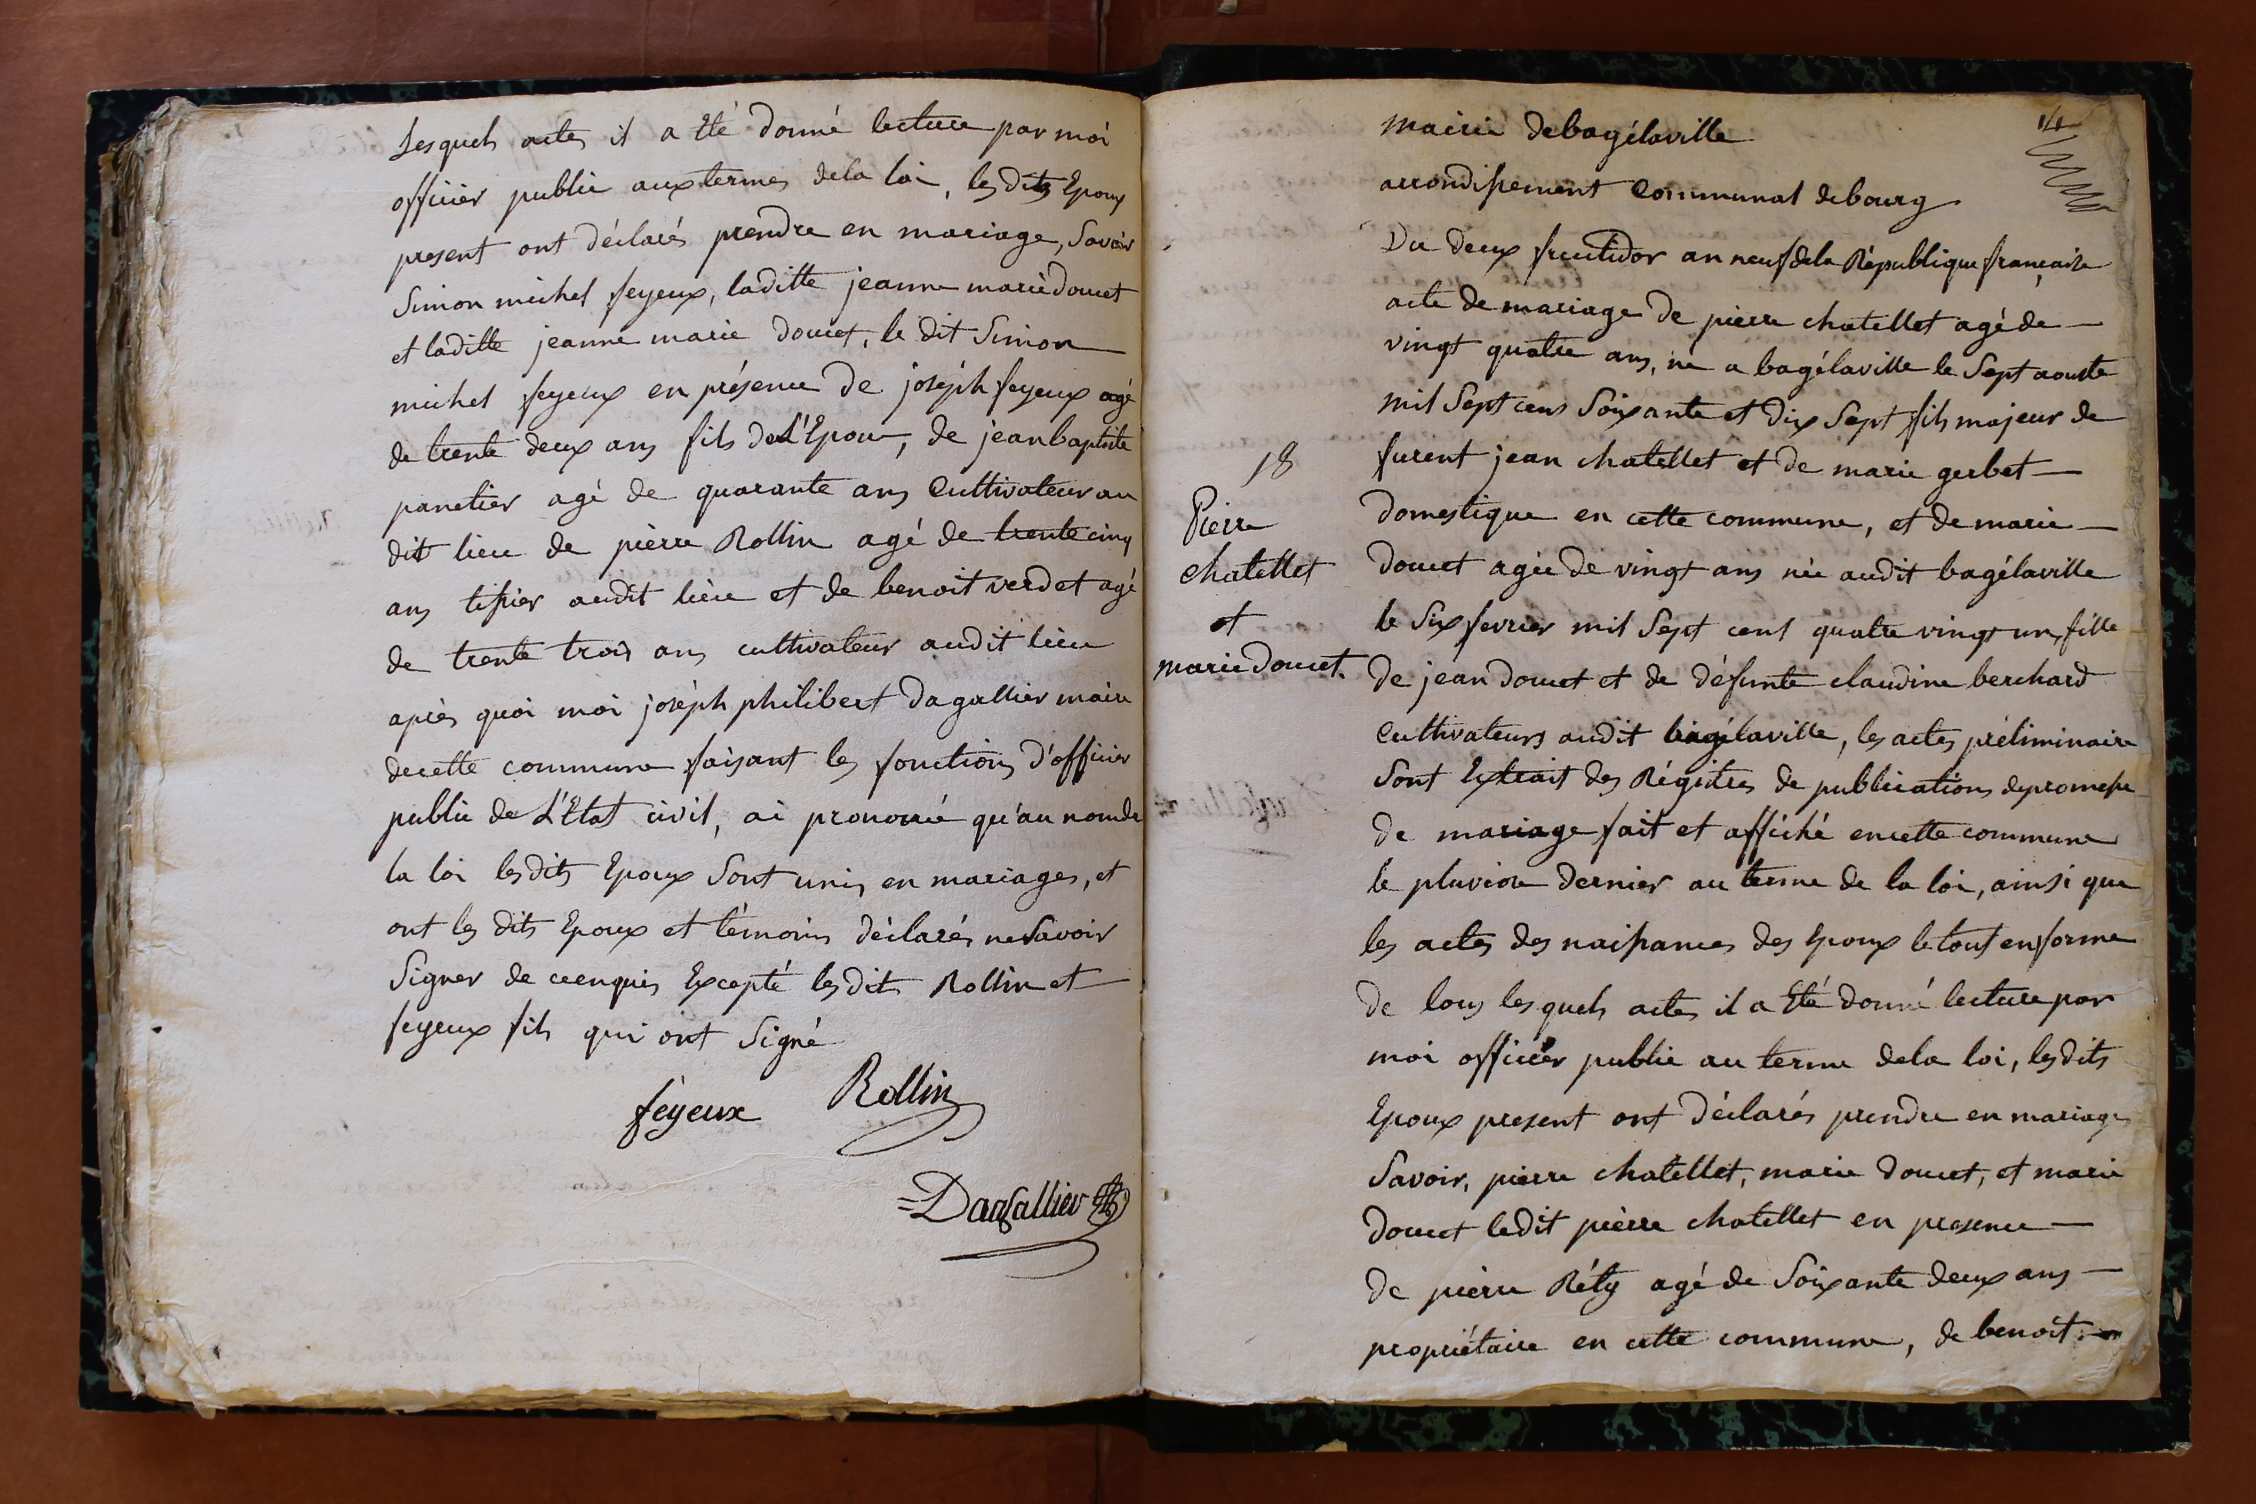 Lesquels actes il a Eté donné lecture par moi
officier public aux termes dela loi, les dits Epoux
present ont déclarés prendre en mariage, Savoir
Simon michel feyeux, laditte jeanne marie doucet
et laditte jeanne marie doucet, le dit Simon
michel feyeux en présence de joséph feyeux agé
de trente deux ans fils de L'Epoux, de jean baptiste
panetier agé de quarante ans Cultivateur au
dit lieu de pièrre Rollin agé de trente cinq
ans tissier audit lieu et de benoit verdet agé
de trente trois ans cultivateur audit lieu
après quoi moi joséph philibert Dagallier maire
decette commune faisant les fonctions d'officier
public de L'Etat civil, ai prononcé qu'au nom de
la loi lesdits Epoux Sont unis en mariages, et
ont les dits Epoux et témoins déclarés ne Savoir
Signer de ce enquis Excepté les dits Rollin et
feyeux fils qui ont Signé
feyeux Rollin
Dagallier
14
mairie debagélaville
arrondissement Communal debourg
Du deux fructidor an neuf dela République française
acte de mariage de pierre chatellet agé de
vingt quatre ans, né a bagélaville le Sept aouste
mil Sept cens Soixante et dix Sept fils majeur de
furent jean chatellet et de marie gerbet
domestique en cette commune, et de marie
doucet agée de vingt ans née audit bagélaville
le Six fevrier mil Sept cent quatre vingt un, fille
de jean doucet et de défunte claudine berchard
Cultivateurs audit bagélaville, les actes préliminaire
Sont Extrait des Régitres de publications de promesse
de mariage fait et affiché encette commune
le pluviose dernier au terme de la loi, ainsi que
les actes des naissances des Epoux le tout en forme
de tous les quels actes il a Eté donné lecture par
moi officier public au terme dela loi, les dits
Epoux present ont déclarés prendre en mariage
Savoir, pierre chatellet, marie doucet, et marie
doucet ledit pièrre chatellet en presence
de pièrre Réty agé de Soixante deux ans
propriétaire en cette commune, de benoit
18
Pierre
chatellet
et
marie doucet.